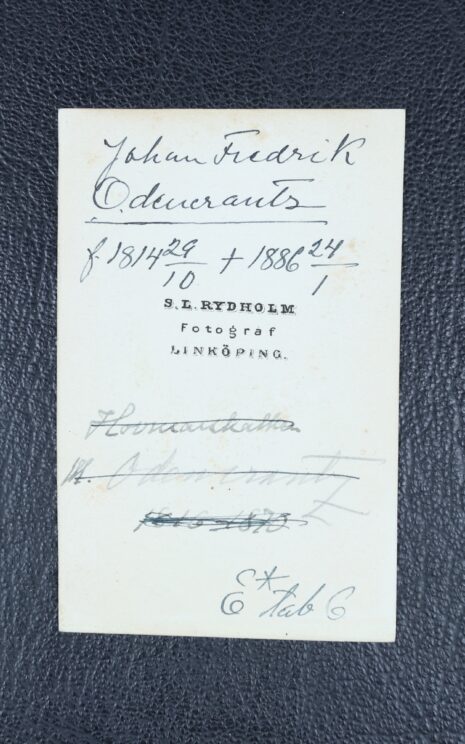 Johan Fredrik
Odencrants
f. 1814 29/10 + 1886 24/1
S. L. RYDHOLM
Fotograf
LINKÖPING.
Hovmarskalken
M. Odencrantz
1816-1873
E* tab 6